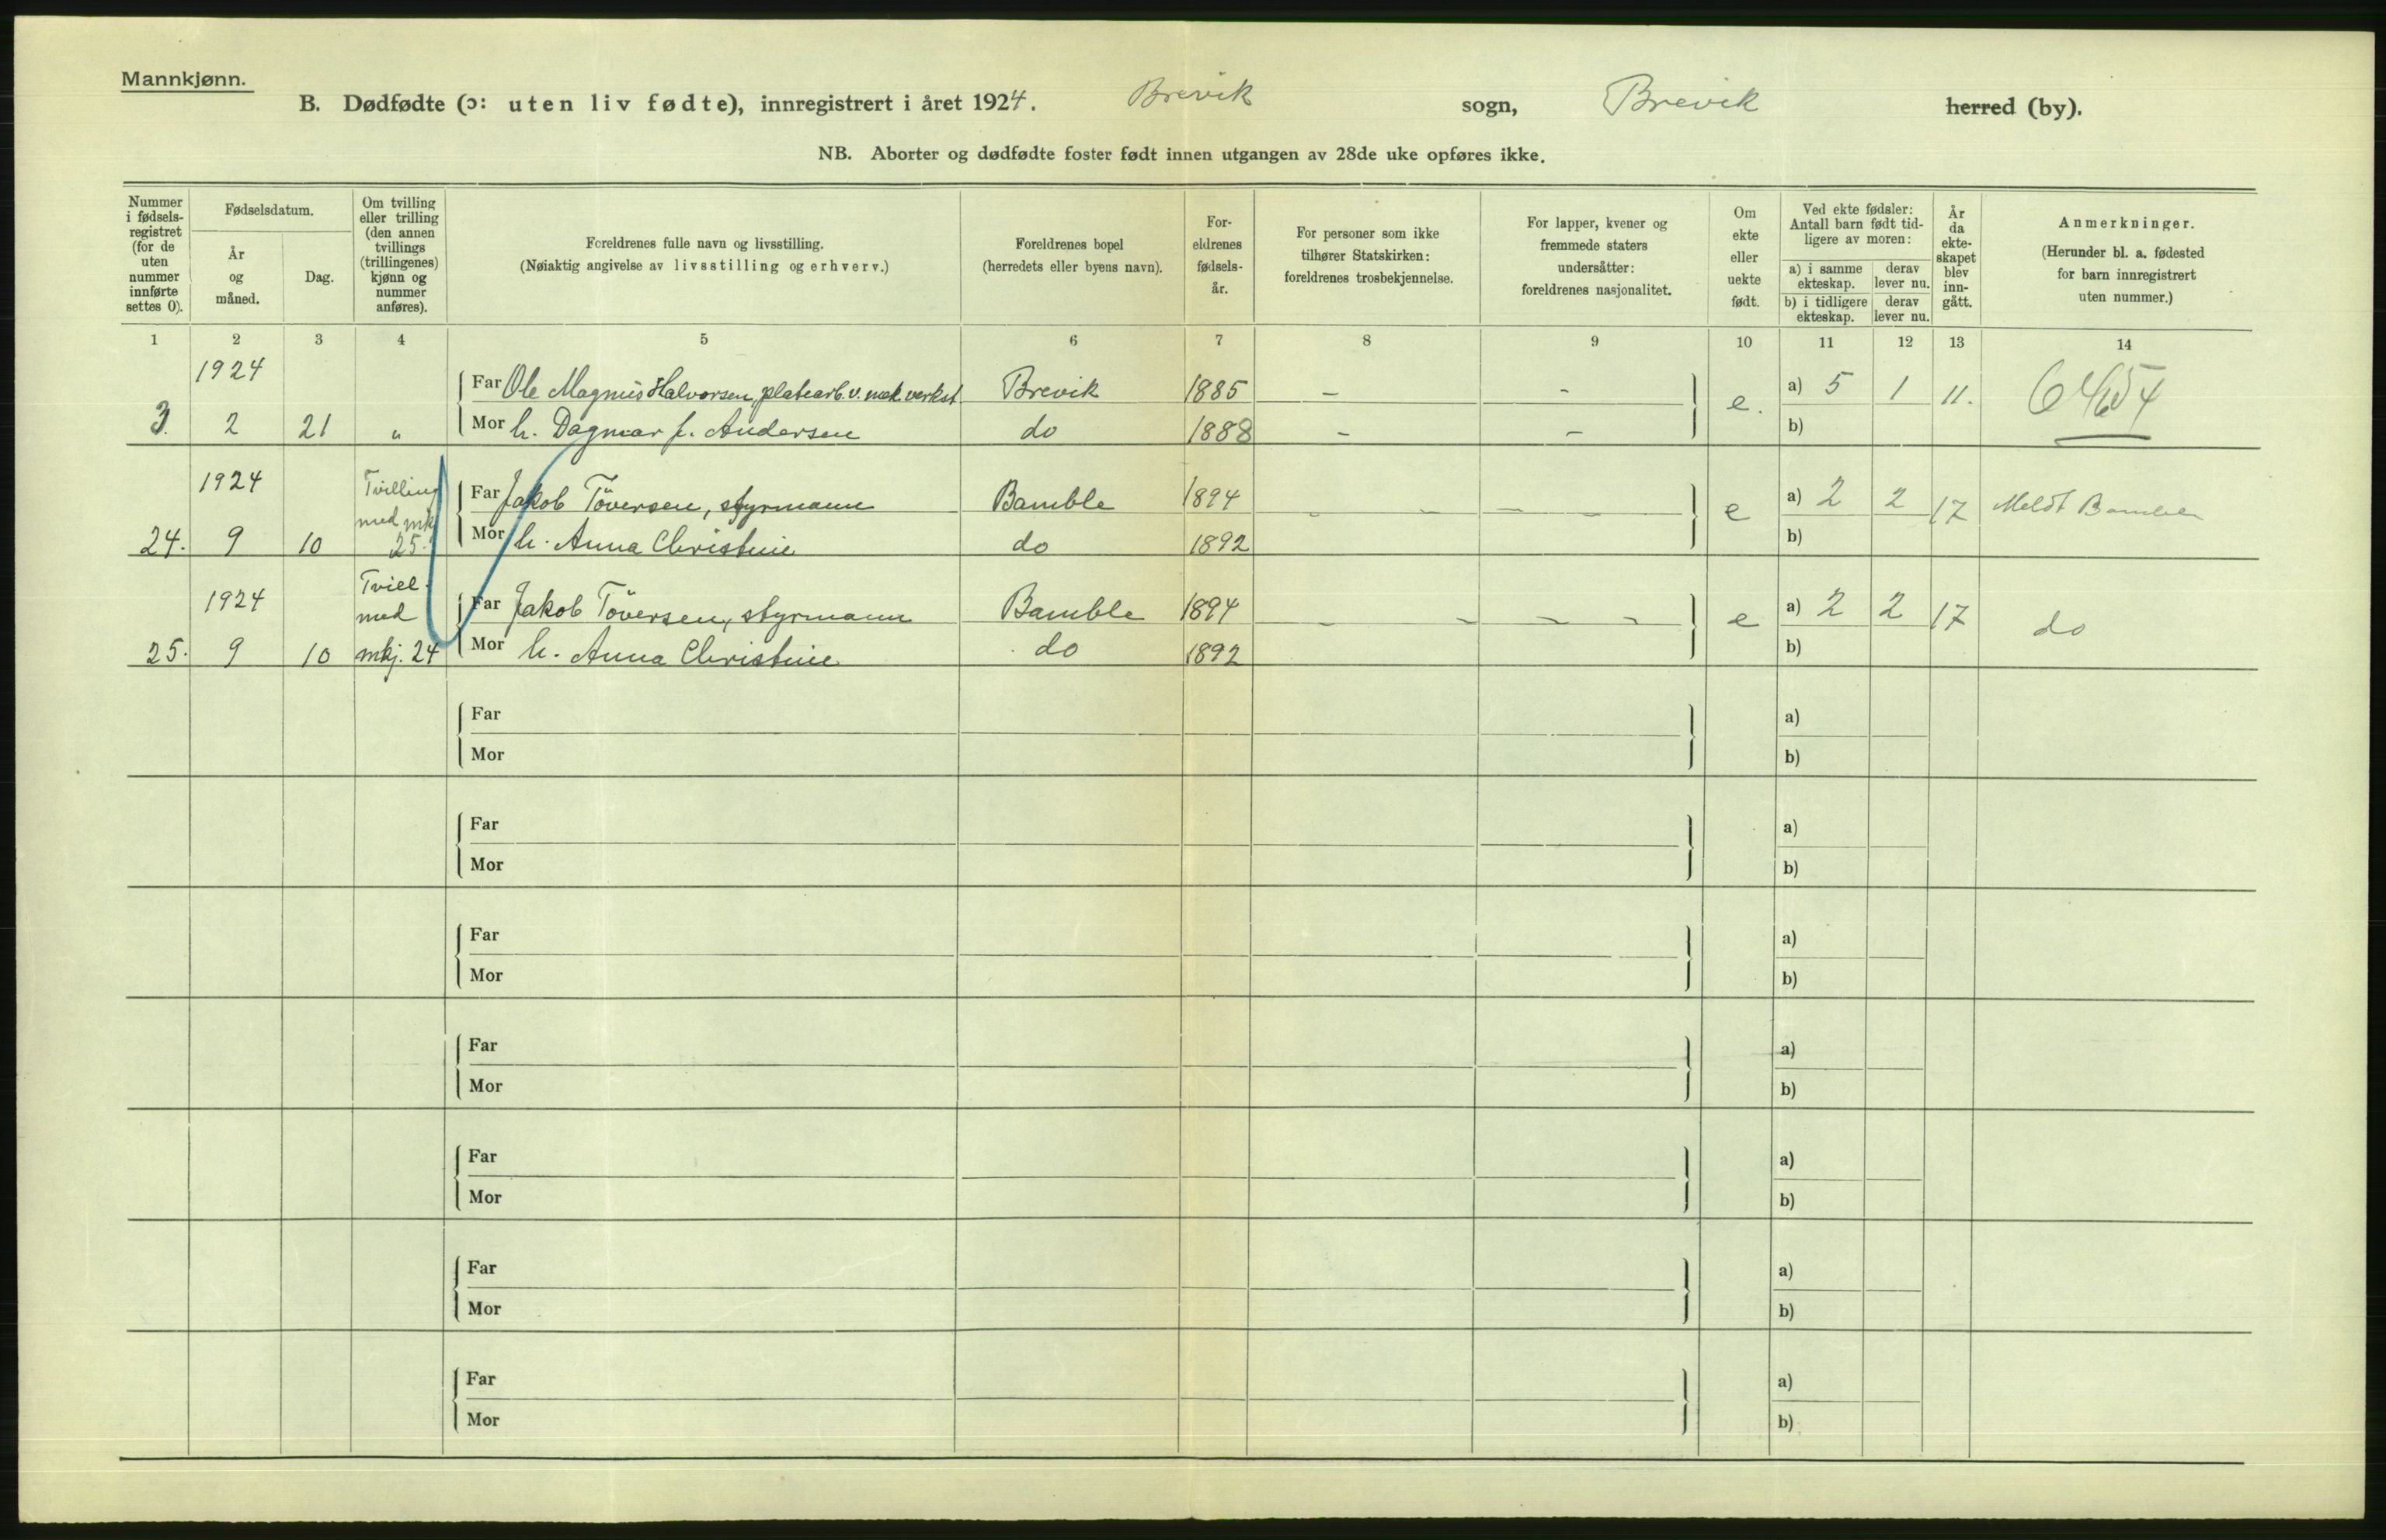 Mannkjønn.
B. Dødfødte (ɔ: uten liv fødte), innregistrert i året 1924. Brevik sogn, Brevik herred (by).
NB. Aborter og dødfødte foster født innen utgangen av 28de uke opføres ikke.
Nummer i fødsels-registret (for de uten nummer innførte settes 0).
Fødselsdatum.
År og måned.
Dag.
Om tvilling eller trilling (den annen tvillings (trillingenes) kjønn og nummer anføres).
Foreldrenes fulle navn og livsstilling.
(Nøiaktig angivelse av livsstilling og erhverv.)
Foreldrenes bopel (herredets eller byens navn).
For-eldrenes fødsels-år.
For personer som ikke tilhører Statskirken: foreldrenes trosbekjennelse.
For lapper, kvener og fremmede staters undersåtter: foreldrenes nasjonalitet.
Om ekte eller uekte født.
Ved ekte fødsler: Antall barn født tid-ligere av moren:
a) i samme ekteskap. derav lever nu.
b) i tidligere ekteskap. derav lever nu.
År da ekte-skapet blev inn-gått.
Anmerkninger.
(Herunder bl. a. fødested for barn innregistrert uten nummer.)
1 2 3 4 5 6 7 8 9 10 11 12 13 14
1924 Far Ole Magnus Halvorsen, platearb. v. mek verkst Brevik 1885 – – e. a) 5 1 11.
3. 2 21 „ Mor h. Dagmar f. Andersen do 1888 – – b)
1924 Tvilling med mk 25. Far Jakob Töversen, styrmann Bamble 1894 – – – – e a) 2 2 17 Meldt Bamble
24. 9 10 Mor h. Anna Christine do 1892 b)
1924 Tvill. med Far Jakob Töversen, styrmann Bamble 1894 – – – – e a) 2 2 17 do
25. 9 10 mkj. 24 Mor h. Anna Christine do 1892 b)
Far a)
Mor b)
Far a)
Mor b)
Far a)
Mor b)
Far a)
Mor b)
Far a)
Mor b)
Far a)
Mor b)
Far a)
Mor b)